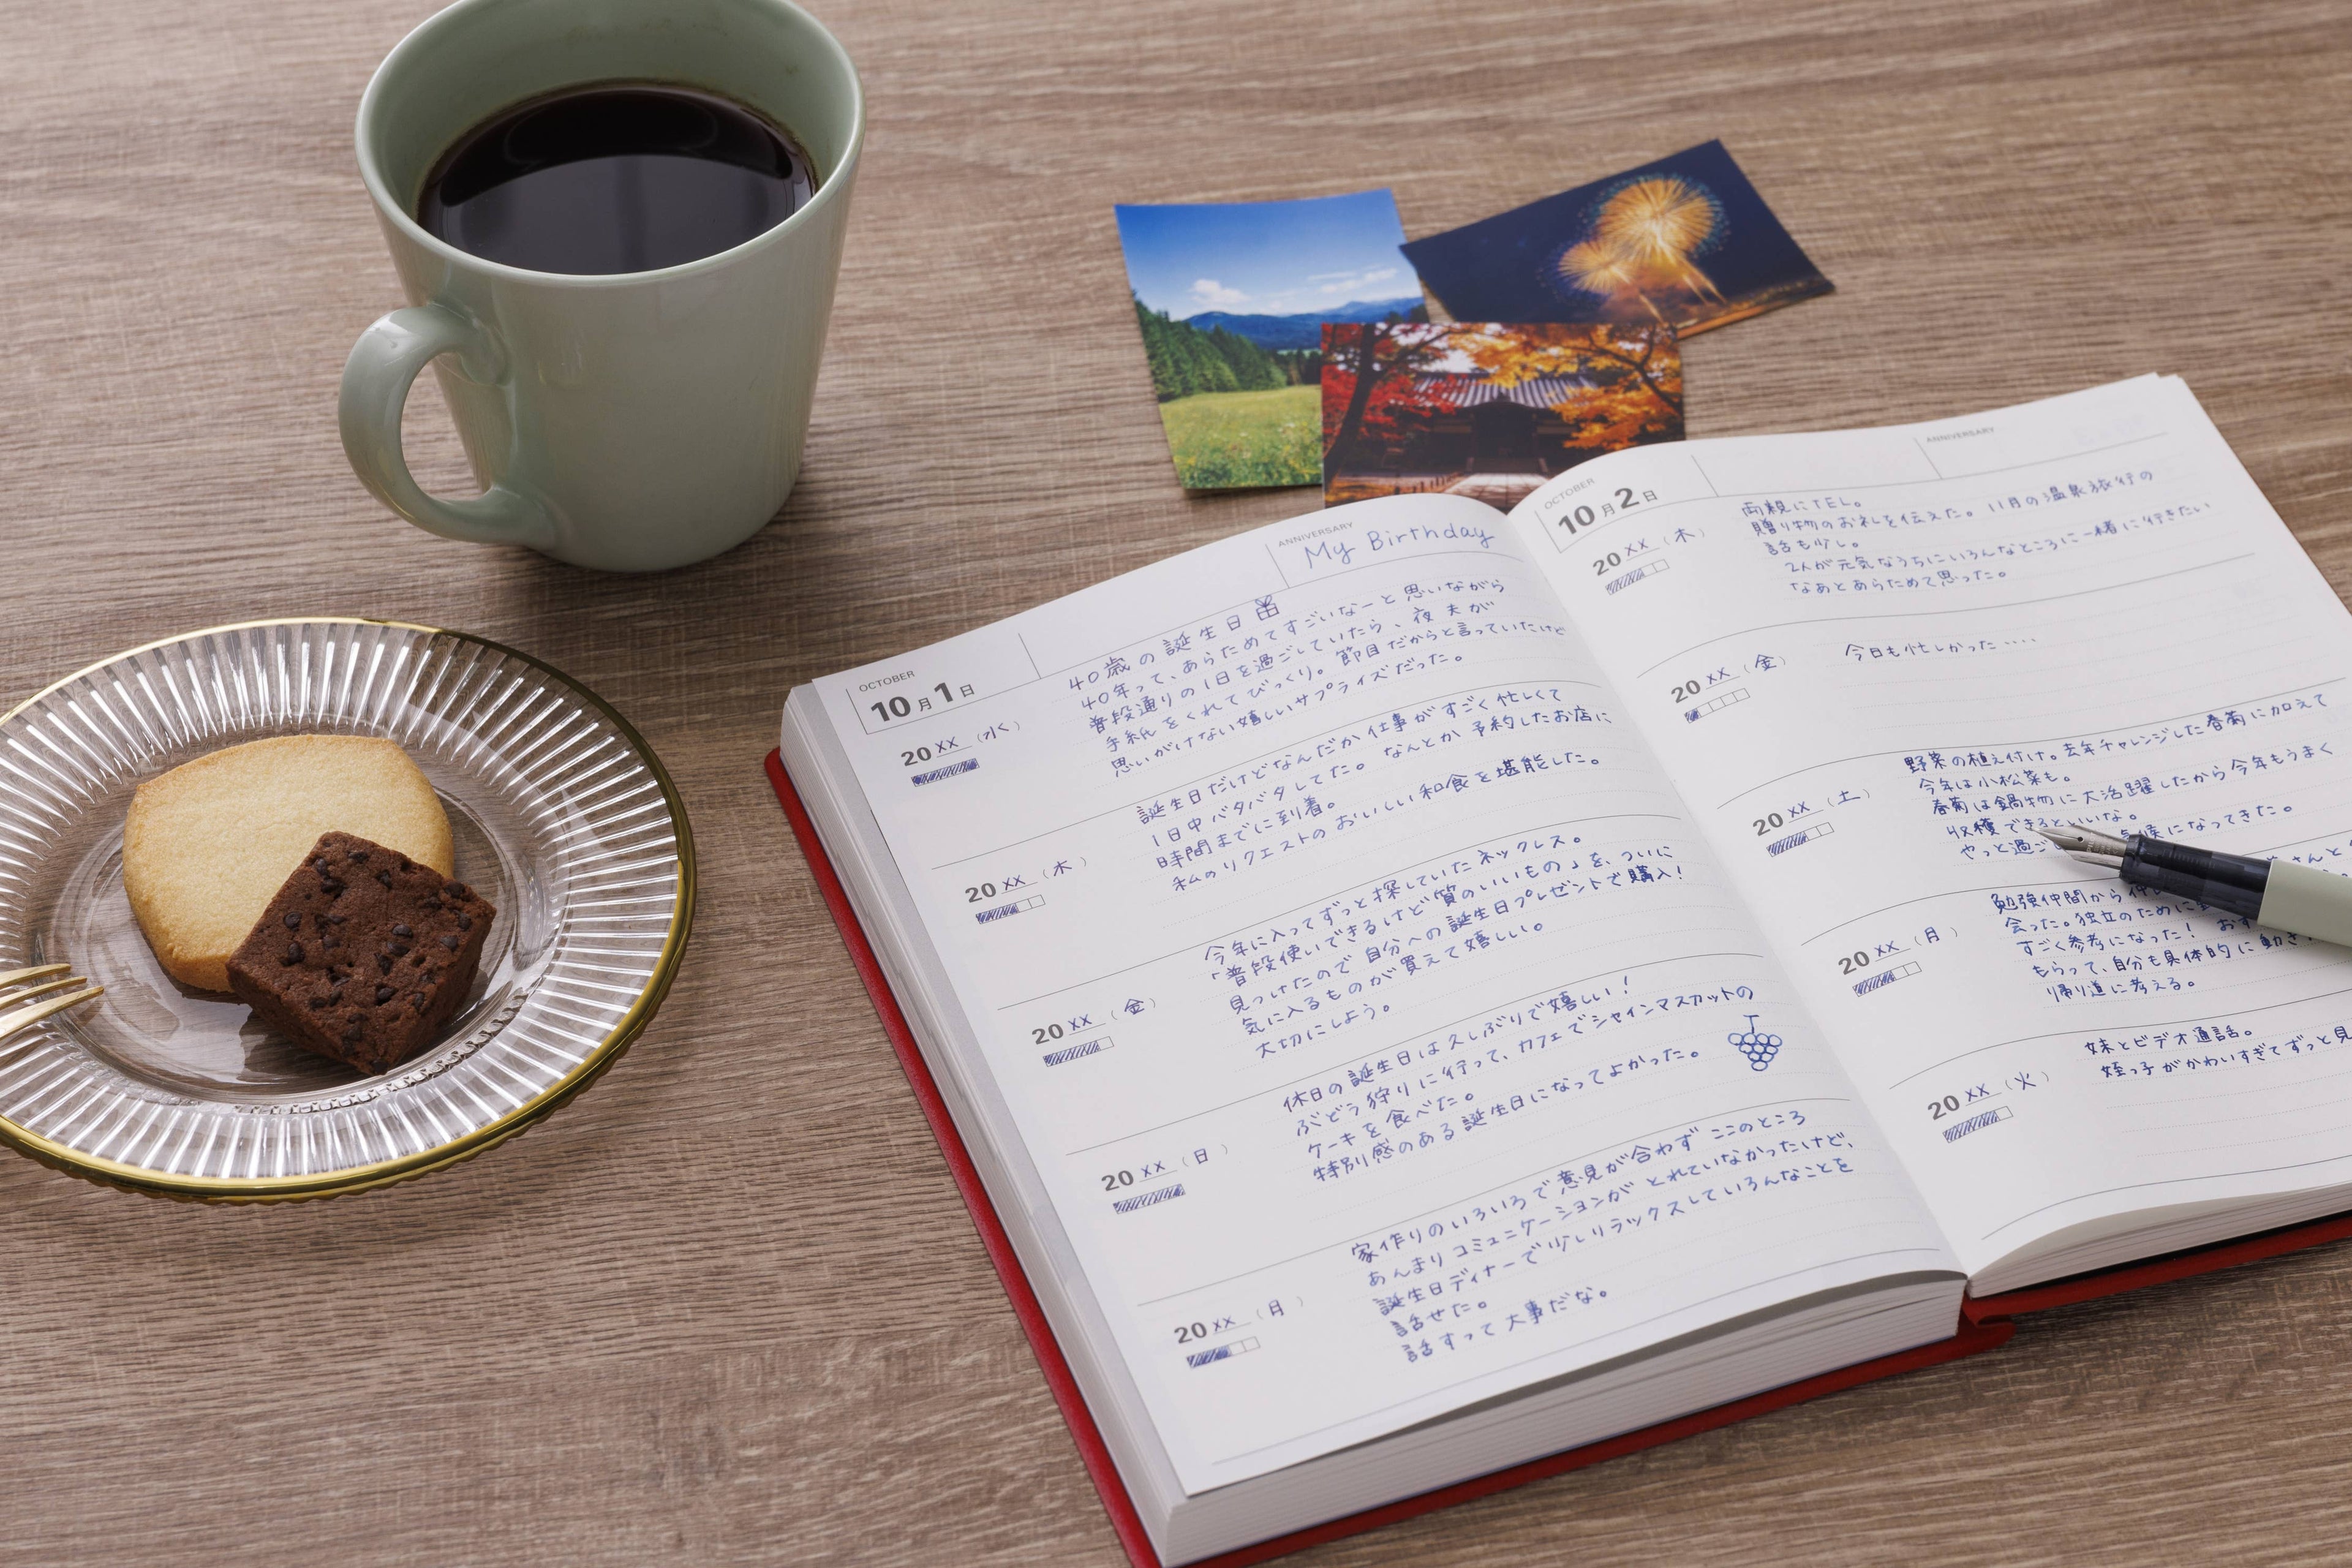 OCTOBER
10月1日
ANNIVERSARY
My Birthday
20XX(水)
40歳の誕生日
40年って、あらためてすごいなーと思いながら
普段通りの1日を過ごしていたら、夜 夫が
手紙をくれてびっくり。節目だからと言っていたけど
思いがけない嬉しいサプライズだった。
20XX(木)
誕生日だけどなんだか仕事がすごく忙しくて
1日中バタバタしてた。なんとか予約したお店に
時間までに到着。
私のリクエストのおいしい和食を堪能した。
20XX(金)
今年に入ってずっと探していたネックレス。
「普段使いできるけど質のいいもの」を、ついに
見つけたので自分への誕生日プレゼントで購入!
気に入るものが買えて嬉しい。
大切にしよう。
20XX(日)
休日の誕生日は久しぶりで嬉しい!
ぶどう狩りに行って、カフェでシャインマスカットの
ケーキを食べた。
特別感のある誕生日になってよかった。
20XX(月)
家作りのいろいろで意見が合わず ここのところ
あんまりコミュニケーションがとれていなかったけど、
誕生日ディナーで少しリラックスしていろんなことを
話せた。
話すって大事だな。
OCTOBER
10月2日
ANNIVERSARY
20XX(木)
両親にTEL。
贈り物のお礼を伝えた。11月の温泉旅行の
話も少し。
2人が元気なうちにいろんなところに一緒に行きたい
なあとあらためて思った。
20XX(金)
今日も忙しかった....
20XX(土)
野菜の植え付け。去年チャレンジした春菊に加えて
今年は小松菜も。
春菊は鍋物に大活躍したから今年もうまく
収穫できるといいな。
やっと過ご 気候になってきた。
20XX(月)
勉強仲間から さんと
会った。独立のために
すごく参考になった! おす
もらって、自分も具体的に動き
帰り道に考える。
20XX(火)
妹とビデオ通話。
姪っ子がかわいすぎてずっと見